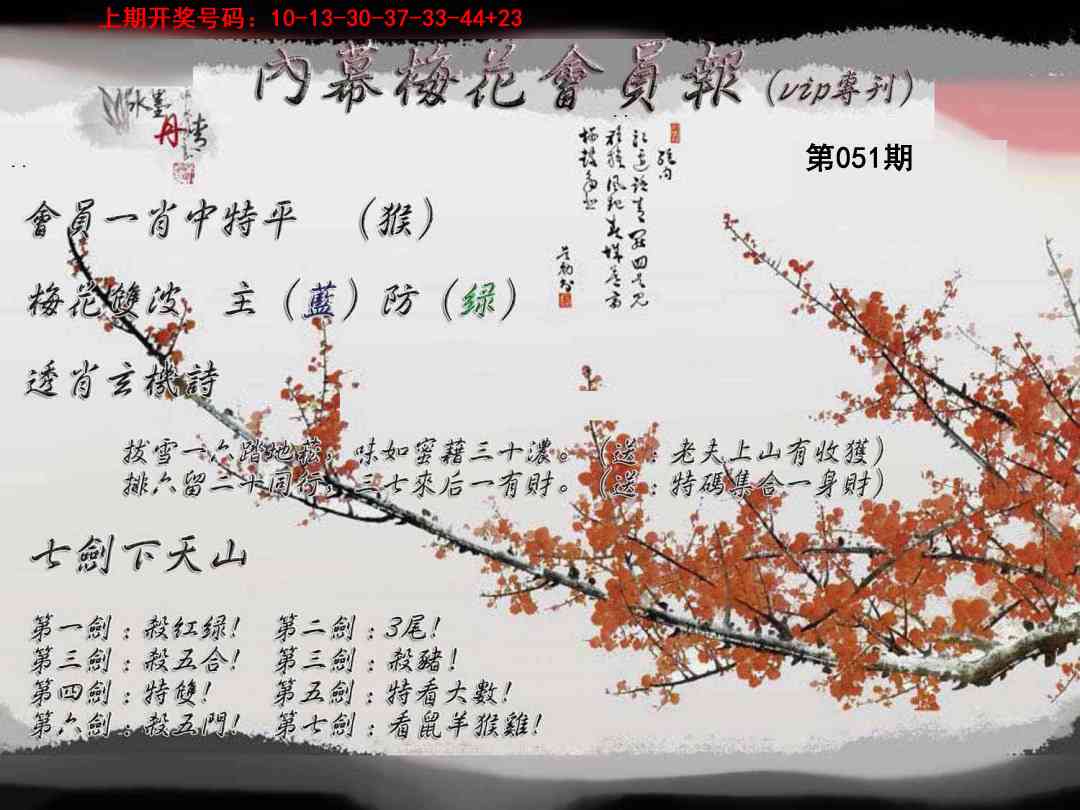 上期开奖号码：10-13-30-37-33-44+23
內幕梅花會員報（vip專刊）
水墨
丹青
第051期
會員一肖中特平 （猴）
梅花雙波 主（藍）防（绿）
透肖玄機詩
拔雪一六踏地菘，味如蜜藉三十濃。（送：老夫上山有收獲）
排六留二十同行，三七來后一有財。（送：特碼集合一身財）
七劍下天山
第一劍：殺红绿！ 第二劍：3尾！
第三劍：殺五合！ 第三劍：殺豬！
第四劍：特雙！ 第五劍：特看大數！
第六劍：殺五門！ 第七劍：看鼠羊猴雞！